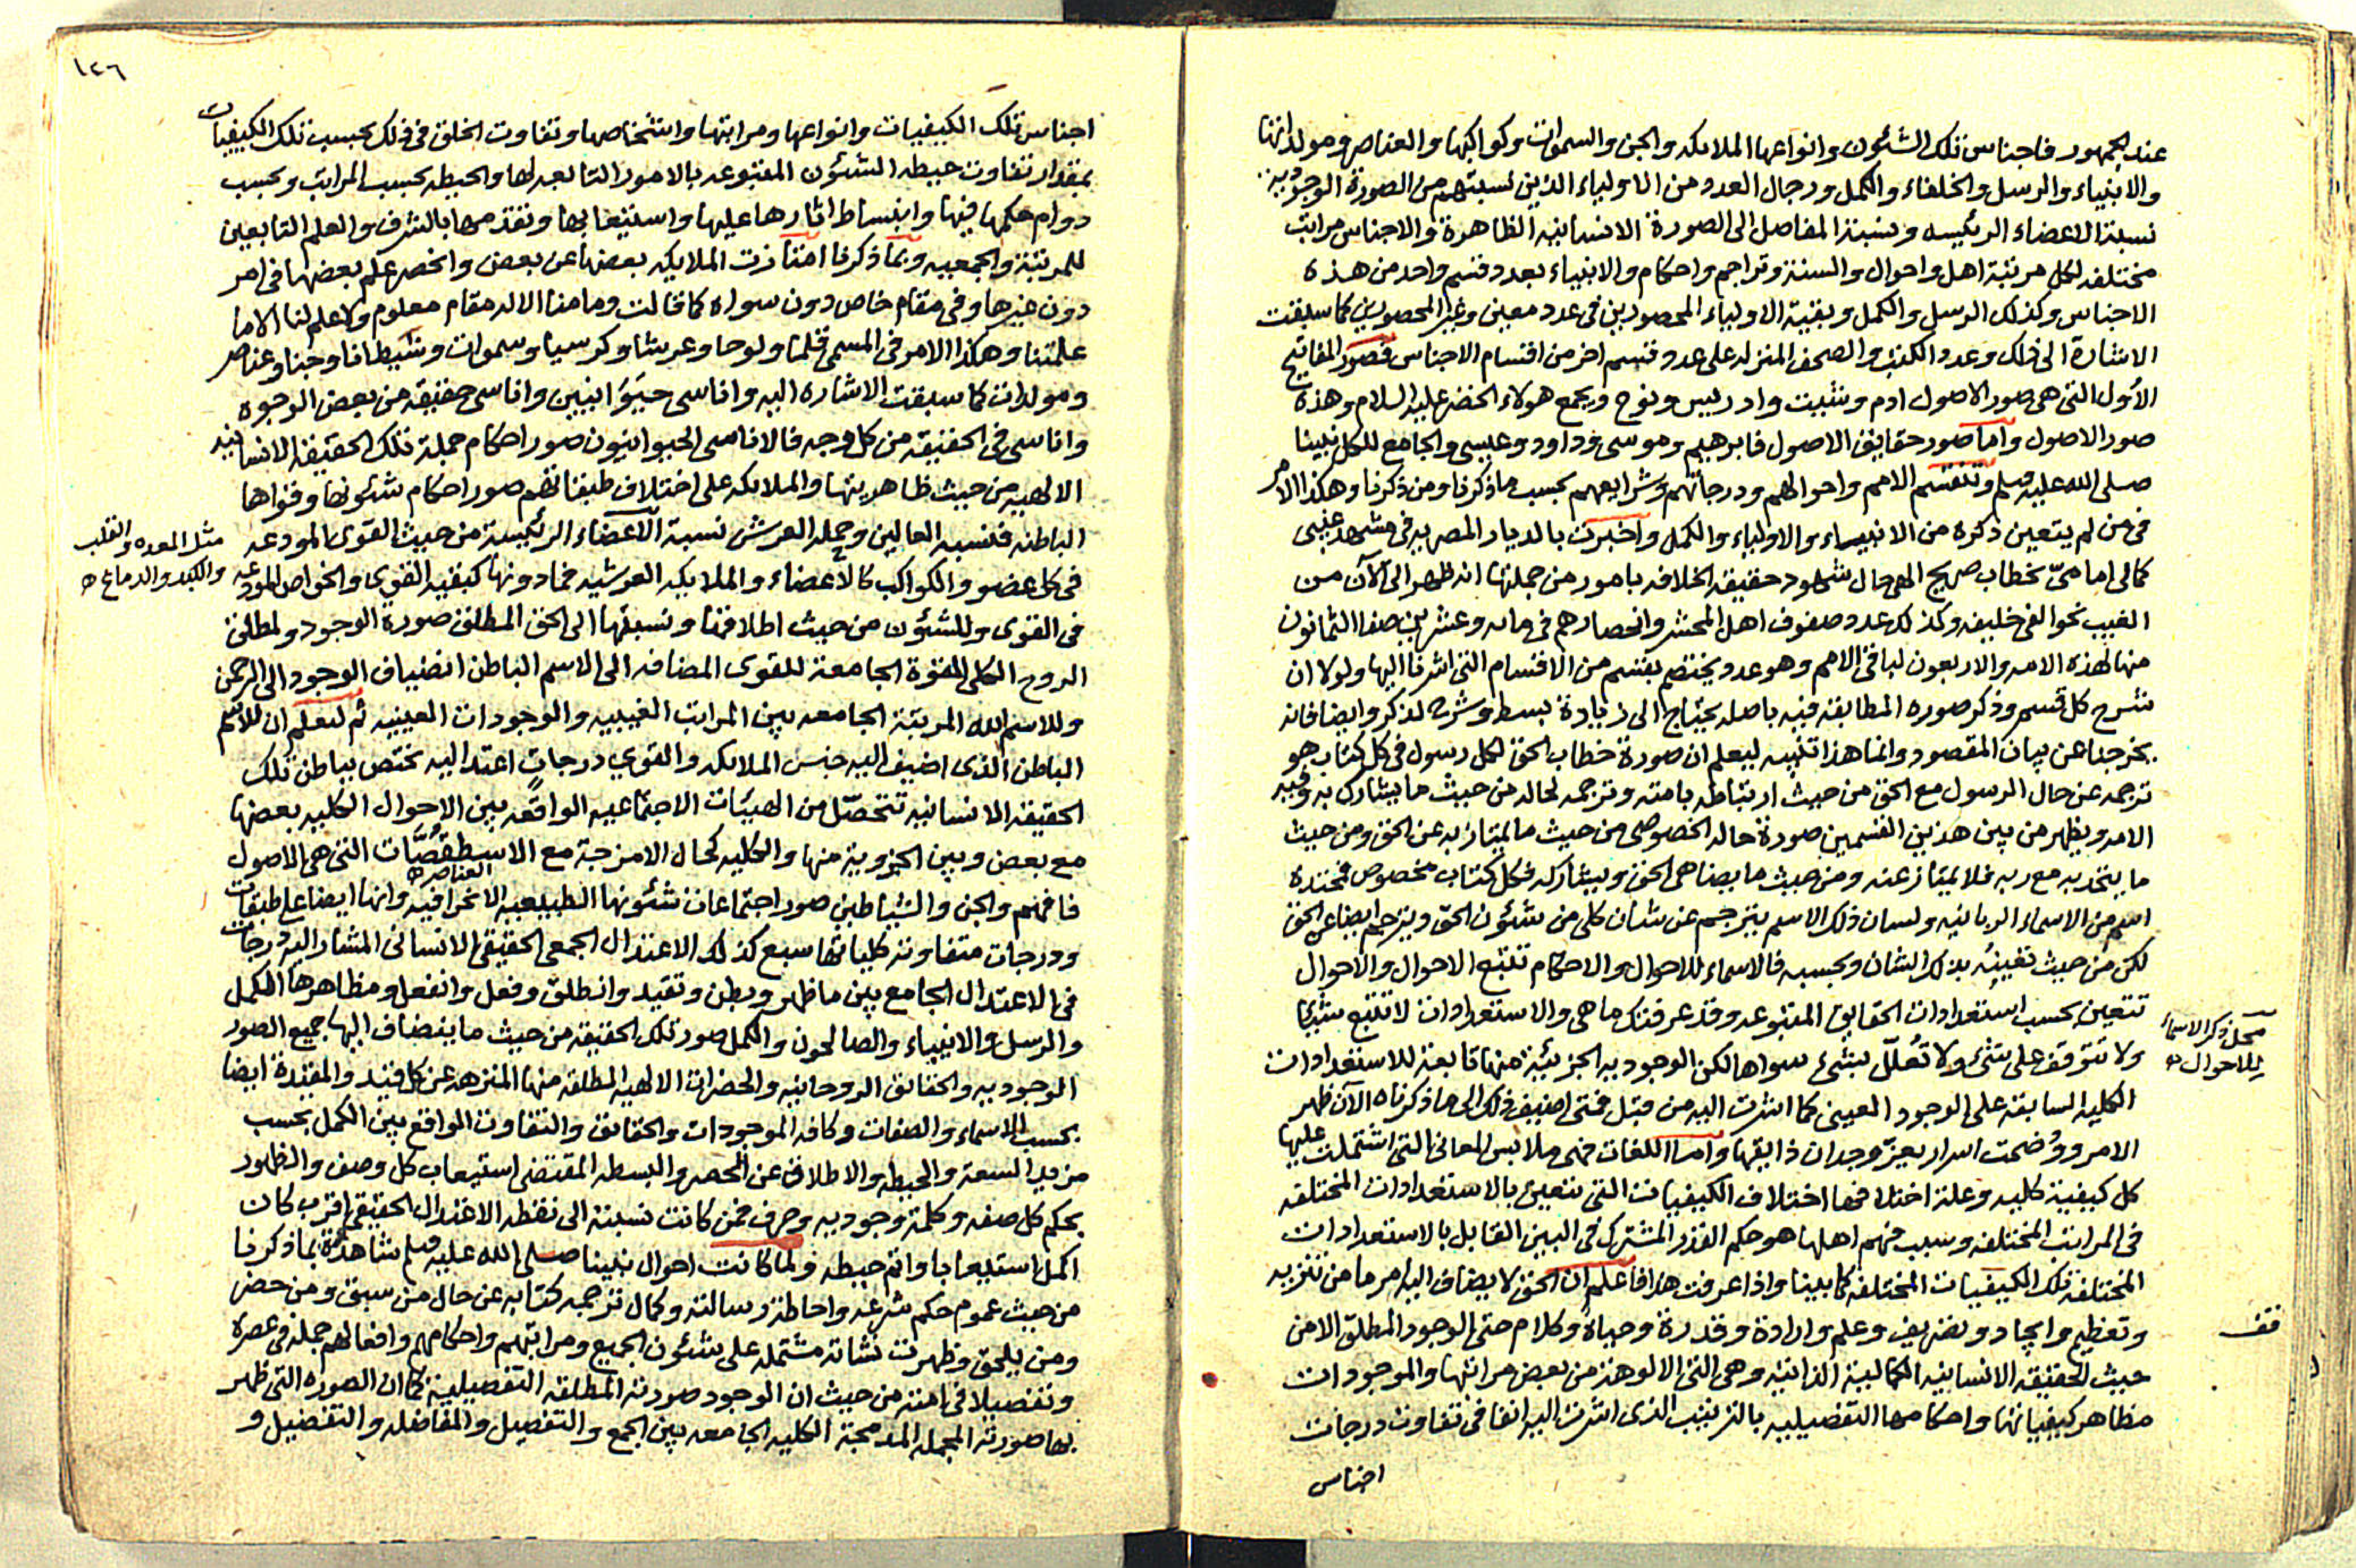 عند الجمهور فاجناس تلك الشئون وانواعها الملائكه والجن والسموات وكواكبها والعناصر ومولداتها
والانبياء والرسل والخلفاء والكمل ورجال العدد من الاولياء الذين نسبتهم من الصورة الوجوديه
نسبة الاعضاء الرئيسه ونسبة المفاصل الى الصورة الانسانيه الظاهرة والاجناس مراتب
مختلفه لكل مرتبة اهل واحوال والسنة وتراجم واحكام والانبياء بعدد قسم واحد من هذه
الاجناس وكذلك الرسل والكمل وبقية الاولياء المحصورين في عدد معين وغير المحصورين كما سبقت
الاشارة الى ذلك وعدد الكتب والصحف المنزله على عدد قسم اخر من اقسام الاجناس فصور المفاتيح
الأول التي هي صور الاصول ادم وشيث وادريس ونوح ويجمع هولاء الخضر عليه السلام وهذه
صور الاصول واما صور حقايق الاصول فابرهيم وموسى وداود وعيسى والجامع للكل نبينا
صلى الله عليه وسلم وتنقسم الامم واحوالهم ودرجاتهم وشرايعهم بحسب ما ذكرنا ومن ذكرنا وهكذا الامر
في من لم يتعين ذكره من الانبياء والاولياء والكمل واخبرت بالديار المصريه في مشهد غيبي
كمالي امامي بخطاب صريح الهي حال شهود حقيقه الخلافه بامور من جملتها انه ظهر الى الآن من
الغيب نحو الفي خليفه وكذلك عدد صفوف اهل المحشر وانحصارهم في مايه وعشرين صفا الثمانون
منها لهذه الامه والاربعون لباقي الامم وهو عدد يختص بقسم من الاقسام التي اشرنا اليها ولولا ان
شرح كل قسم وذكر صوره المطابقه فيه باصله يحتاج الى زيادة بسط وشرح لذكر وايضا فانه
يخرجنا عن بيان المقصود وانما هذا تنبيه ليعلم ان صورة خطاب الحق لكل رسول في كل كتاب هو
ترجمه عن حال الرسول مع الحق من حيث ارتباطه بامته وترجمه لحاله من حيث ما يشارك به وفيه
الامه ويظهر من بين هذين القسمين صورة حاله الخصوصي من حيث ما يمتاز به عن الحق ومن حيث
ما يتحد به مع ربه فلا يمتاز عنه ومن حيث ما يضاهي الحق ويشاركه فكل كتاب مخصوص فمحتده
اسم من الاسماء الربانيه ولسان ذلك الاسم يترجم عن شان كلي من شئون الحق ويترجم ايضا عن الحق
لكن من حيث تعينه بذلك الشان وبحسبه فالاسماء للاحوال والاحكام تتبع الاحوال والاحوال
تتعين بحسب استعدادات الحقايق المتبوعه وقد عرفتك ما هي والاستعدادات لا تتبع شيئا
ولا تتوقف على شئ ولا تعلل بشئ سواها لكن الوجوديه الجزئية منها تابعة للاستعدادات
الكليه السابقه على الوجود العيني كما اشرت اليه من قبل فمتى اضيف ذلك الى ما ذكرناه الآن ظهر
الامر ووضحت اسرار يعز وجدان ذايقها واما اللغات فهي ملابس المعاني التي اشتملت عليها
كل كيفية كليه وعلة اختلافها اختلاف الكيفيات التي تتعين بالاستعدادات المختلفه
في المراتب المختلفه وسبب فهم اهلها هو حكم القدر المشترك في البين القابل بالاستعدادات
المختلفة تلك الكيفيات المختلفه كما بينا واذا عرفت هذا فاعلم ان الحق لا يضاف اليه امر ما من تنزيه
وتعظيم وايجاد وتصريف وعلم وارادة وقدرة وحياة وكلام حتى الوجود المطلق الا من
حيث الحقيقه الانسانيه الكماليه الذاتيه وهي التي الالوهة من بعض مراتبها والموجودات
مظاهر كيفياتها واحكامها التفصيليه بالترتيب الذي اشرت اليه انفا في تفاوت درجات
اجناس
محل ذكر الاسماء
للاحوال
قف
١٤٦
اجناس تلك الكيفيات وانواعها ومراتبها واشخاصها وتفاوت الخلق في ذلك بحسب تلك الكيفيات
بمقدار تفاوت حيطه الشئون المتبوعه بالامور التابعه لها والحيطه بحسب المراتب وبحسب
دوام حكمها فيها وانبساط اثارها عليها واستتباعها وتقدمها بالشرف والعلم التابعين
للمرتبة والجمعيه وبما ذكرنا امتازت الملايكه بعضها عن بعض وانحصر علم بعضها في امر
دون غيرها وفي مقام خاص دون سواه كما قالت وما منا الا له مقام معلوم ولا علم لنا الا ما
علمتنا وهكذا الامر في المسمى قلما ولوحا وعرشا وكرسيا وسموات وشيطانا وجنا وعناصر
ومولدات كما سبقت الاشاره اليه واناسي حيوانيين واناسي حقيقه من بعض الوجوه
واناسي في الحقيقه من كل وجه فالاناسى الحيوانيون صور احكام جملة تلك الحقيقة الانسانيه
الالهيه من حيث ظاهريتها والملائكه على اختلاف طبقاتهم صور احكام شئونها وقواها
الباطنه فنسبه العالين وحمله العرش نسبة الاعضاء الرئيسة من حيث القوى المودعه
في كل عضو والكواكب كالاعضاء والملايكه العرشيه فما دونها كبقيه القوى والخواص المودعه
في القوى وللشئون من حيث اطلاقها ونسبتها الى الحق المطلق صورة الوجود ولمطلق
الروح الكلي القوة الجامعة للقوى المضافه الى الاسم الباطن انضياف الوجود الى الرحمن
وللاسم الله المرتبة الجامعه بين المراتب الغيبيه والوجودات العينيه ثم لتعلم ان للاسم
الباطن الذي اضيف اليه جنس الملائكه والقوي درجات اعتداليه تختص بباطن تلك
الحقيقه الانسانيه تتحصل من الهيئات الاجتماعيه الواقعه بين الاحوال الكليه بعضها
مع بعض وبين الجزوية منها والكليه كحال الامزجة مع الاسطقصات التي هي الاصول
العناصر
فافهم والجن والشياطين صور اجتماعات شئونها الطبيعيه الانحرافيه وانها ايضا على طبقات
ودرجات متفاوته كلياتها سبع كذلك الاعتدال الجمعي الحقيقي الانساني المشار اليه درجات
في الاعتدال الجامع بين ما ظهر وبطن وتقيد وانطلق وفعل وانفعل ومظاهرها الكمل
والرسل والانبياء والصالحون والكمل صور تلك الحقيقه من حيث ما ينضاف اليها جميع الصور
الوجوديه والحقائق الروحانيه والحضرات الالهيه المطلقه منها المنزهه عن كل قيد والمقيدة ايضا
بحسب الاسماء والصفات وكافه الموجودات والحقائق والتفاوت الواقع بين الكمل بحسب
مزيد السعه والحيطه والاطلاق عن الحصر والبسطه المقتضى استيعاب كل وصف والظهور
بحكم كل صفه وكلمة وجوديه وحرف فمن كانت نسبته الى نقطه الاعتدال الحقيقي اقرب كان
اكمل استيعابا واتم حيطه ولما كانت احوال نبينا صلى الله عليه وسلم شاهدة بما ذكرنا
من حيث عموم حكم شرعه واحاطة رسالته وكمال ترجمه كتابه عن حال من سبق ومن حضر
ومن يلحق وظهرت نشاته مشتمله على شئون الجميع ومراتبهم واحكامهم وافعالهم جملة في عصره
وتفصيلا في امته من حيث ان الوجود صورته المطلقه التفصيلية كما ان الصوره التي ظهر
بها صورته المجمله المدمجة الكليه الجامعه بين الجمع والتفصيل والمفاضله والتفضيل و
مثل المعده والقلب
والكبد والدماغ